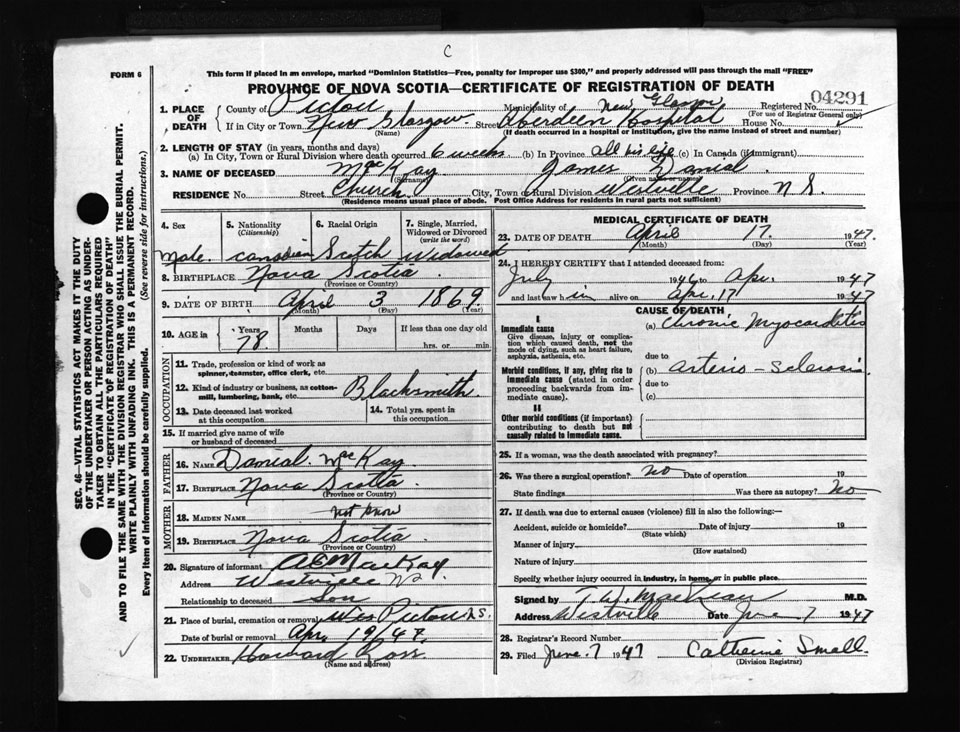 C
FORM 6
This form if placed in an envelope, marked "Dominion Statistics—Free, penalty for improper use $300," and properly addressed will pass through the mail "FREE"
PROVINCE OF NOVA SCOTIA—CERTIFICATE OF REGISTRATION OF DEATH
04291
1. PLACE OF DEATH County of Pictou Municipality of New Glasgow Registered No.
(For use of Registrar General only)
If in City or Town New Glasgow Street Aberdeen Hospital House No.
(Name) (If death occurred in a hospital or institution, give the name instead of street and number)
2. LENGTH OF STAY (in years, months and days)
(a) In City, Town or Rural Division where death occurred 6 weeks (b) In Province all his life (c) In Canada (if immigrant)
3. NAME OF DECEASED MacKay James Danial
(Surname) (Given name or names)
RESIDENCE No. Street Church City, Town or Rural Division Westville Province N S.
(Residence means usual place of abode. Post Office Address for residents in rural parts not sufficient)
4. Sex 5. Nationality (Citizenship) 6. Racial Origin 7. Single, Married, Widowed or Divorced (write the word)
Male. Canadian Scotch Widowed
8. BIRTHPLACE Nova Scotia
(Province or Country)
9. DATE OF BIRTH April 3 1869
(Month) (Day) (Year)
10. AGE in Years Months Days If less than one day old
78. hrs. or min.
OCCUPATION
11. Trade, profession or kind of work as spinner, teamster, office clerk, etc.
12. Kind of industry or business, as cotton-mill, lumbering, bank, etc. Blacksmith.
13. Date deceased last worked at this occupation
14. Total yrs. spent in this occupation
15. If married give name of wife or husband of deceased
FATHER
16. NAME Danial MacKay
17. BIRTHPLACE Nova Scotia.
(Province or Country)
MOTHER
18. MAIDEN NAME not know
19. BIRTHPLACE Nova Scotia.
(Province or Country)
20. Signature of informant MacKay
Address Westville NS
Relationship to deceased Son
21. Place of burial, cremation or removal Pictou N.S.
Date of burial or removal Apr. 1947.
22. UNDERTAKER Howard Ross.
(Name and address)
MEDICAL CERTIFICATE OF DEATH
23. DATE OF DEATH April 17. 1947.
(Month) (Day) (Year)
24. I HEREBY CERTIFY that I attended deceased from:
July 1946 to Apr. 1947
and last saw him alive on Apr. 17 1947
CAUSE OF DEATH
I
Immediate cause
Give disease, injury or complication which caused death, not the mode of dying, such as heart failure, asphyxia, asthenia, etc.
(a) Chronic Myocarditis
due to
Morbid conditions, if any, giving rise to immediate cause (stated in order proceeding backwards from immediate cause).
(b) Arterio-Sclerosis.
due to
(c)
II
Other morbid conditions (if important) contributing to death but not causally related to immediate cause.
25. If a woman, was the death associated with pregnancy?
26. Was there a surgical operation? No Date of operation 19
State findings Was there an autopsy? No
27. If death was due to external causes (violence) fill in also the following:—
Accident, suicide or homicide? Date of injury 19
(State which)
Manner of injury
(How sustained)
Nature of injury
Specify whether injury occurred in industry, in home, or in public place.
Signed by M.D.
Address Westville Date June 7 1947
28. Registrar's Record Number
29. Filed June 7 1947 Catherine Small.
(Division Registrar)
SEC. 46—VITAL STATISTICS ACT MAKES IT THE DUTY
OF THE UNDERTAKER OR PERSON ACTING AS UNDERTAKER
TO OBTAIN ALL THE PARTICULARS REQUIRED
IN THE "CERTIFICATE OF REGISTRATION OF DEATH"
AND TO FILE THE SAME WITH THE DIVISION REGISTRAR WHO SHALL ISSUE THE BURIAL PERMIT.
WRITE PLAINLY WITH UNFADING INK. THIS IS A PERMANENT RECORD.
Every item of information should be carefully supplied. (See reverse side for instructions.)